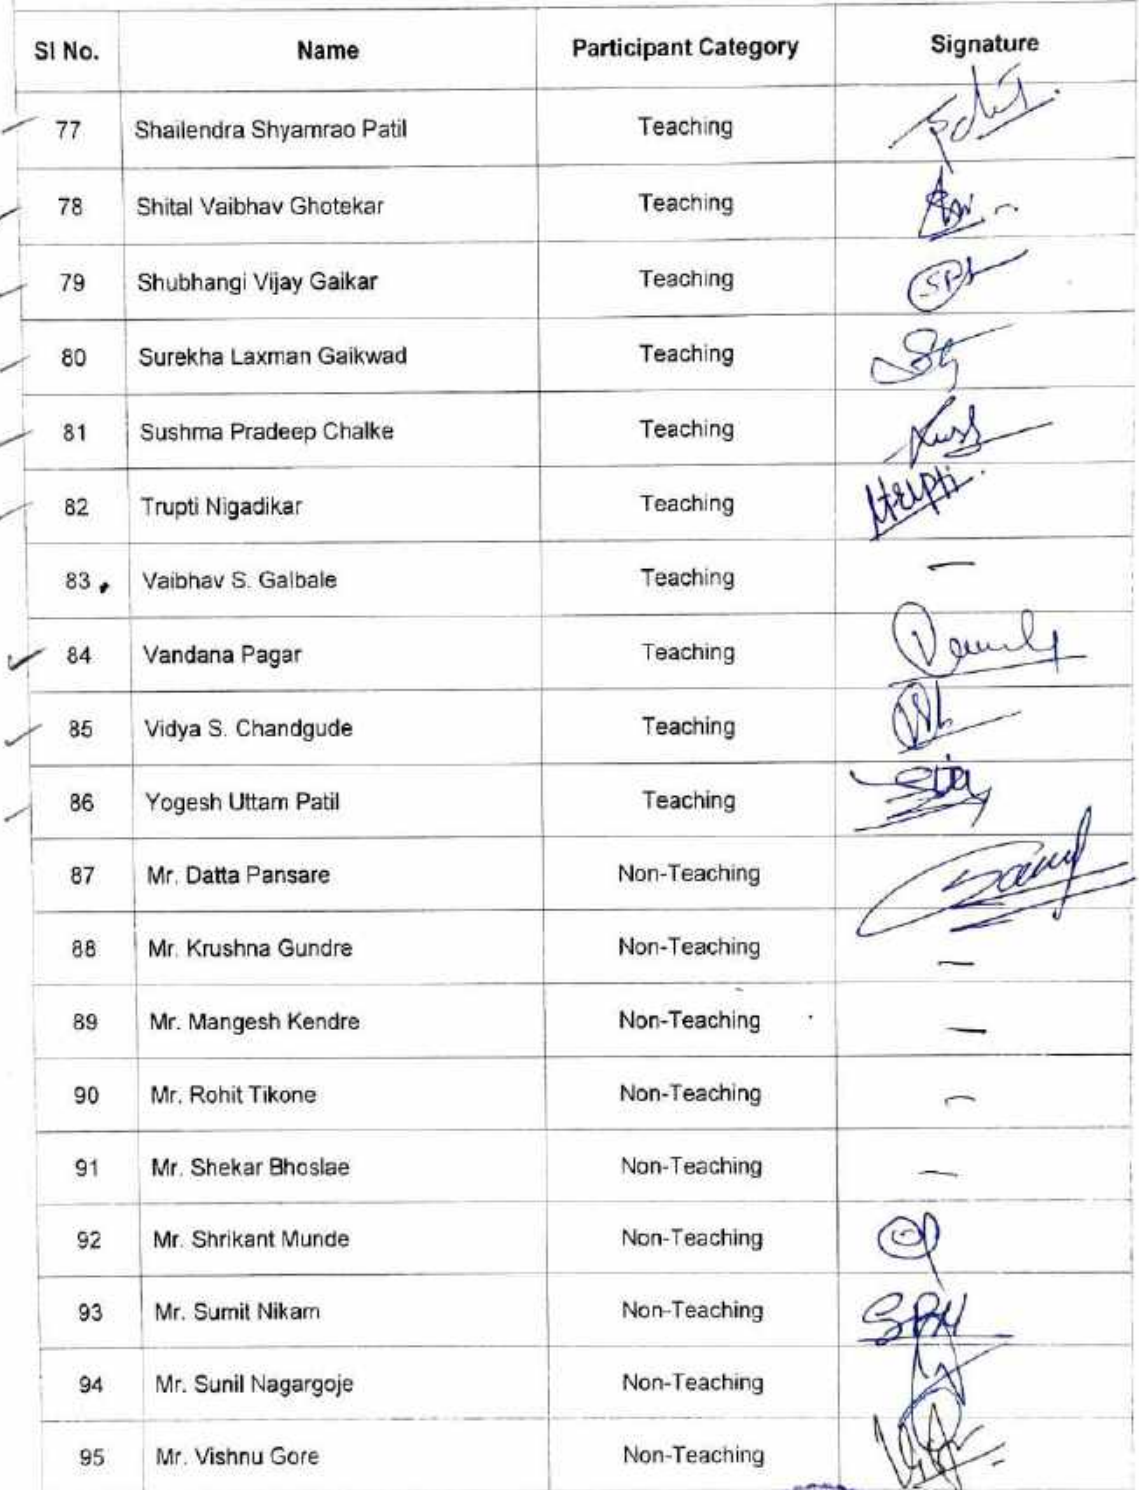 Sl No. Name Participant Category Signature
77 Shailendra Shyamrao Patil Teaching
78 Shital Vaibhav Ghotekar Teaching
79 Shubhangi Vijay Gaikar Teaching
80 Surekha Laxman Gaikwad Teaching
81 Sushma Pradeep Chalke Teaching
82 Trupti Nigadikar Teaching
83 Vaibhav S. Galbale Teaching —
84 Vandana Pagar Teaching
85 Vidya S. Chandgude Teaching
86 Yogesh Uttam Patil Teaching
87 Mr. Datta Pansare Non-Teaching
88 Mr. Krushna Gundre Non-Teaching —
89 Mr. Mangesh Kendre Non-Teaching —
90 Mr. Rohit Tikone Non-Teaching —
91 Mr. Shekar Bhoslae Non-Teaching —
92 Mr. Shrikant Munde Non-Teaching
93 Mr. Sumit Nikam Non-Teaching
94 Mr. Sunil Nagargoje Non-Teaching
95 Mr. Vishnu Gore Non-Teaching